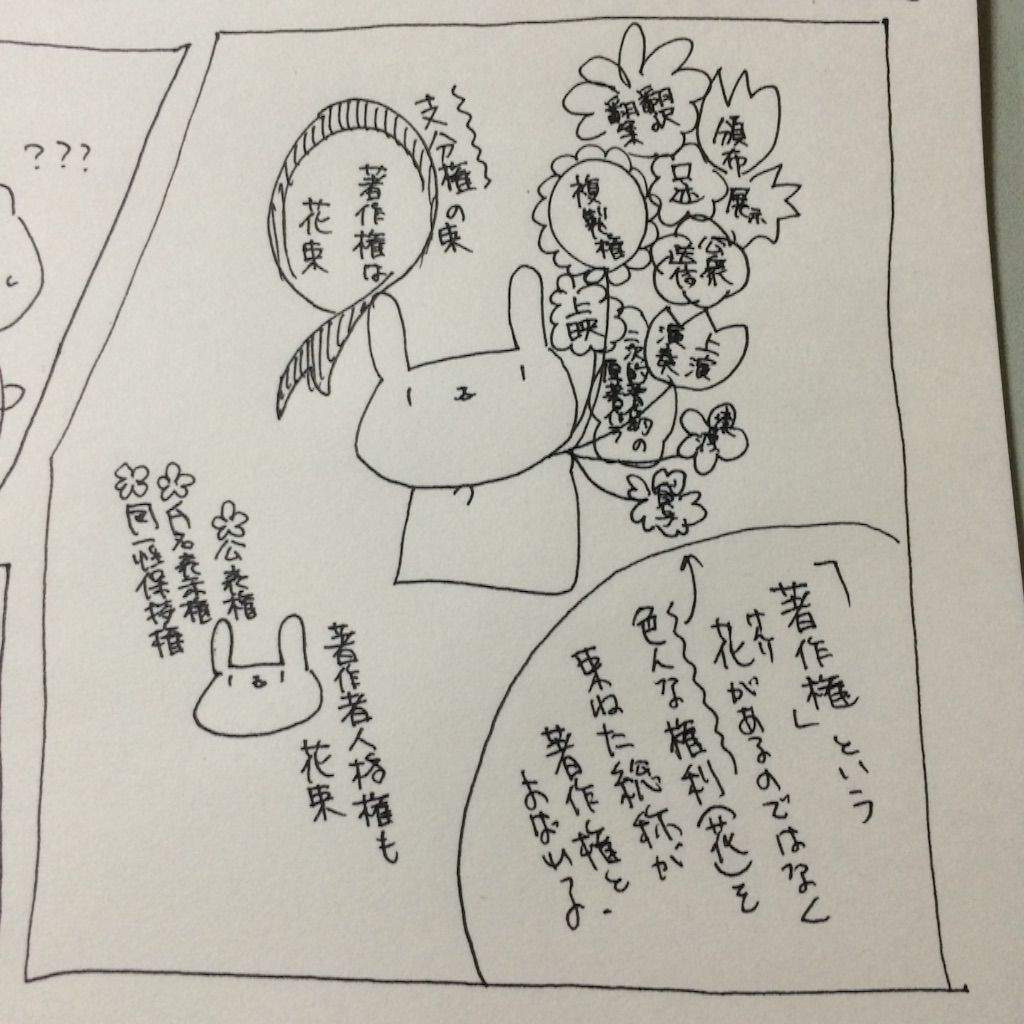 支分権の束
著作権は
花束
翻訳
翻案
頒布
口述
展示
複製権
公衆
送信
上映
上演
演奏
二次的著作物の
原著作
貸与
「著作権」という
花があるのではなく
けんり
色んな権利(花)を
束ねた総称が
著作権と
よばれる
公表権
氏名表示権
同一性保持権
著作者人格権も
花束
???